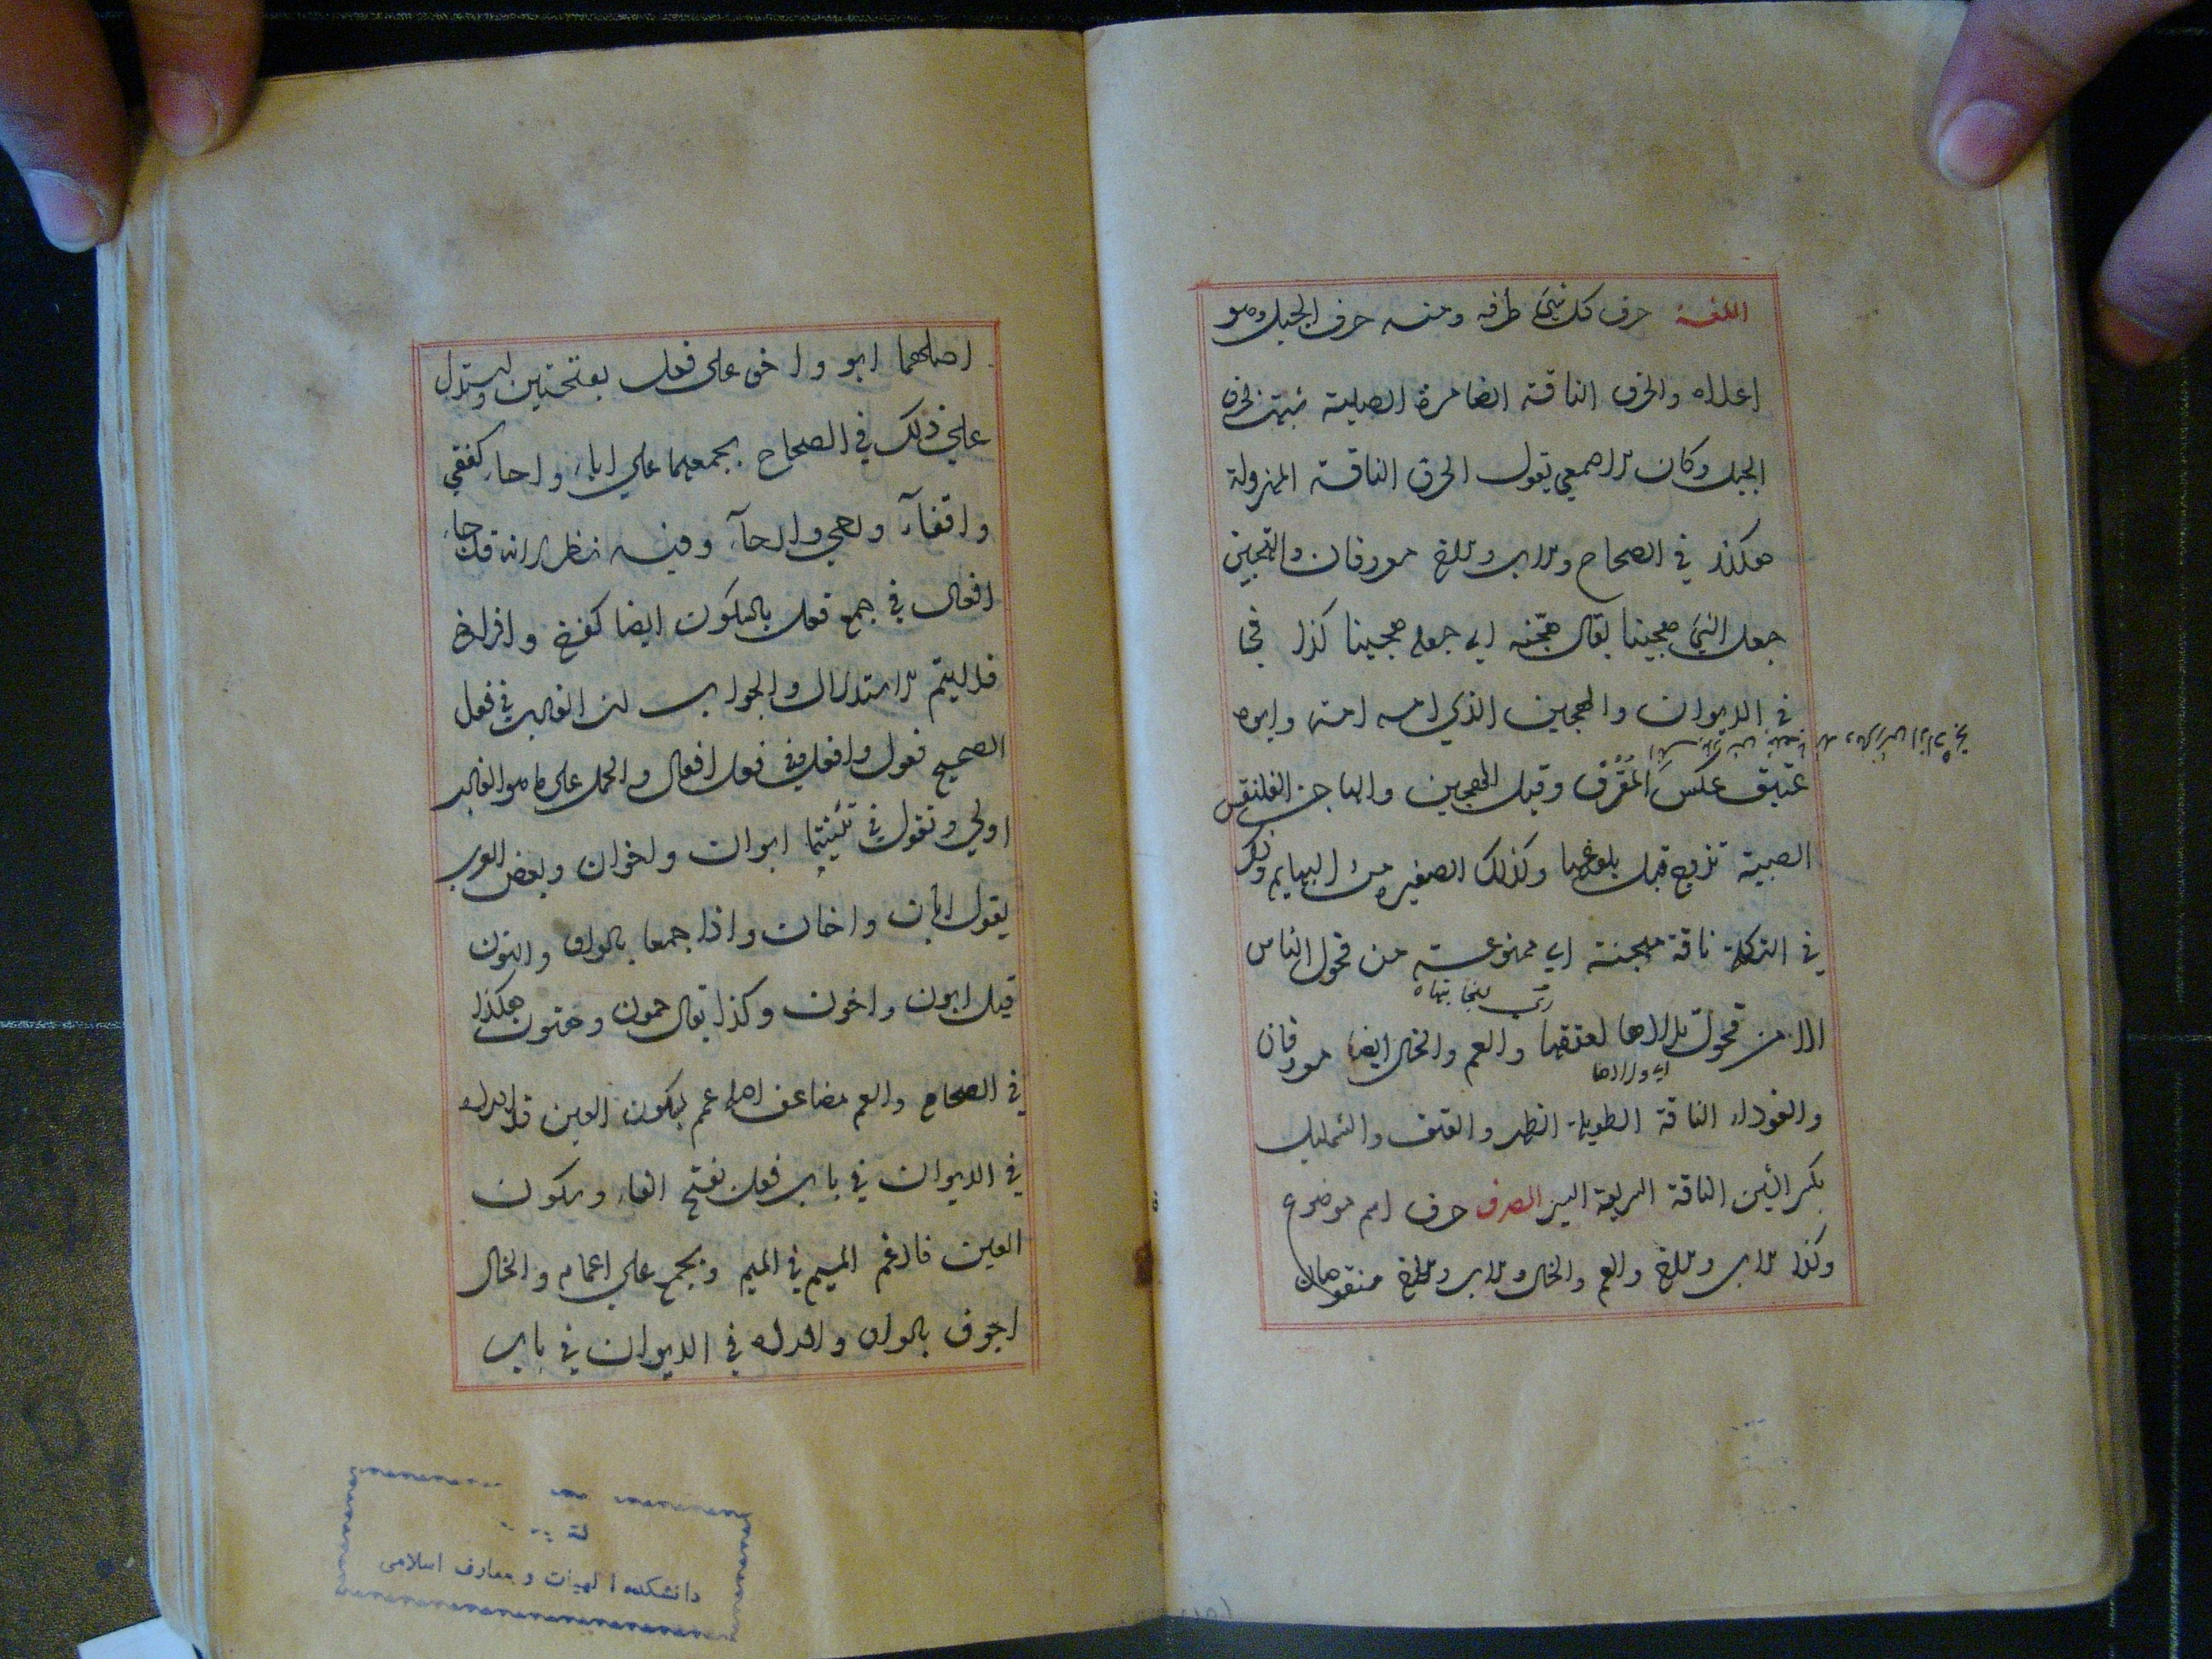 اللغة حرف كل شئ طرفه ومنه حرف الجبل وهو
اعلاه والحرف الناقة الضامرة الصلبة شبهت بحرف
الجبل وكان الاصمعي يقول الحرف الناقة المهزولة
هكذا في الصحاح والاب والاخ معروفان والتهجين
جعل الشئ هجينا يقال هجنه اي جعله هجينا كذا
في الديوان والهجين الذي امه امة وابوه
عتيق عكس المقرف وقيل الهجين والهاجن الفلنقس
الصبية تزوج قبل بلوغها وكذلك الصغيرة من البهايم وذكر
في التكملة ناقة مهجنة اي ممنوعة من فحول الناس
الا من فحول بلادها لعتقها والعم والخال ايضا معروفان
اي ولادها
والقوداء الناقة الطويلة الظهر والعنق والشمليل
بكسر الشين الناقة السريعة السير الصرف حرف اسم موضوع
وكذا الاب والاخ والعم والخال والاب والاخ منقوصان
اصلهما ابو واخو على فعل بفتحتين واستدل
علي ذلك في الصحاح بجمعهما علي اباء واخاء كقفي
واقفآء ورحي وارحآء وفيه نظر لانه قد جاء
افعال في جمع فعل بالسكون ايضا كفرخ وافراخ
فلا يتم الاستدلال والجواب ان الغالب في فعل
الصحيح فعول وافعل وفي فعل افعال والحمل على ما هو الغالب
اولي وتقول في تثنيتهما ابوان واخوان وبعض العرب
يقول ابان واخان واذا جمعا بالواو والنون
قيل ابون واخون وكذا يقال حمون وهنون هكذا
في الصحاح والعم مضاعف اصله عمم بسكون العين
في الديوان في باب فعل بفتح الفاء وسكون
العين فادغم الميم في الميم ويجمع علي اعمام والخال
اجوف بالواو واورده في الديوان في باب
دانشكده الهيات و معارف اسلامى